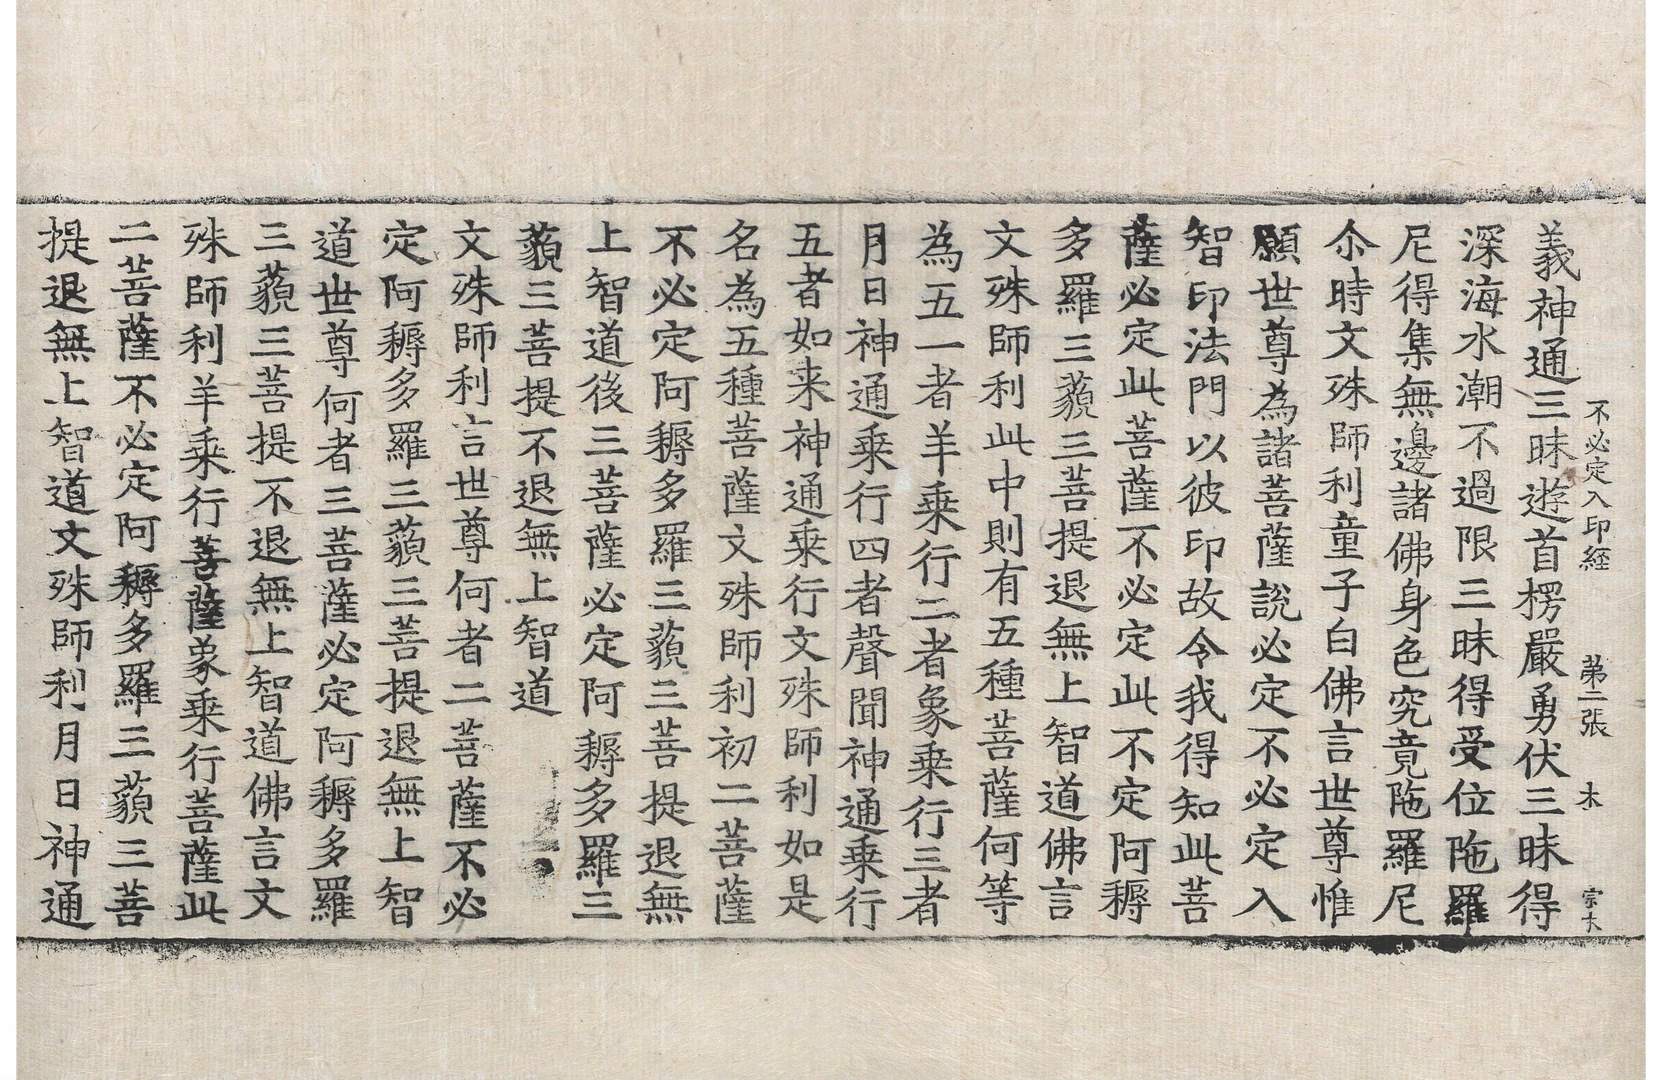 不必定入印經 第二張 木 宗大
義神通三昧遊首楞嚴勇伏三昧得
深海水潮不過限三昧得受位陁羅
尼得集無邊諸佛身色究竟陁羅尼
尒時文殊師利童子白佛言世尊惟
願世尊為諸菩薩說必定不必定入
智印法門以彼印故令我得知此菩
薩必定此菩薩不必定此不定阿耨
多羅三藐三菩提退無上智道佛言
文殊師利此中則有五種菩薩何等
為五一者羊乘行二者象乘行三者
月日神通乘行四者聲聞神通乘行
五者如来神通乘行文殊師利如是
名為五種菩薩文殊師利初二菩薩
不必定阿耨多羅三藐三菩提退無
上智道後三菩薩必定阿耨多羅三
藐三菩提不退無上智道
文殊師利言世尊何者二菩薩不必
定阿耨多羅三藐三菩提退無上智
道世尊何者三菩薩必定阿耨多羅
三藐三菩提不退無上智道佛言文
殊師利羊乘行菩薩象乘行菩薩此
二菩薩不必定阿耨多羅三藐三菩
提退無上智道文殊師利月日神通